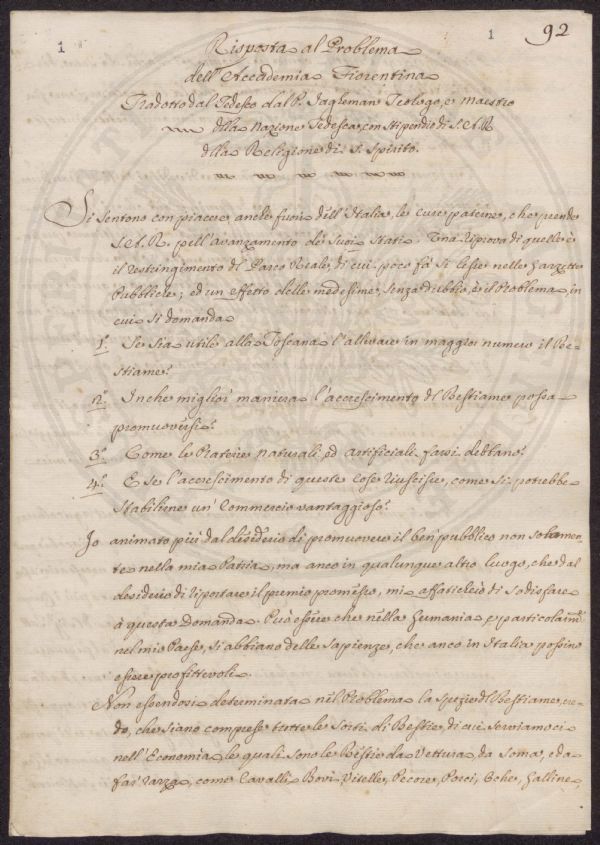 1
1
92
Risposta al Problema
dell'Accademia Fiorentina
Tradotto dal Tedesco dal P. Jagheman Teologo, e maestro
della Nazione Tedesca, con Stipendio di S.A.R
della Religione di S. Spirito.
Si sentono con piacere anche fuori dell'Italia, le cure paterne, che prende
S.A.R. pell'avanzamento de' suoi Stati. Una riprova di quelle è
il restringimento del Parco Reale, di cui poco fà si lesse nelle Gazzette
Pubbliche; ed un effetto delle medesime, senza dubbio, è il Problema, in
cui si domanda
1.º Se sia utile alla Toscana l'allevare in maggior numero il Be-
stiame?
2.º In che miglior maniera l'accrescimento del Bestiame possa
promuoversi?
3.º Come le Praterie naturali, ed artificiali farsi debbano?
4.º E se l'accrescimento di queste cose riuscisse, come si potrebbe
stabilire un Commercio vantaggioso?
Io animato più dal desiderio di promuovere il ben pubblico non solamen-
te nella mia Patria, ma anco in qualunque altro luogo, che dal
desiderio di riportare il premio promesso, mi affaticherò di sodisfare
à questa Domanda. Può essere che nella Germania e particolarm.te
nel mio Paese, si abbiano delle sapienze, che anco in Italia possino
essere profittevoli.
Non essendosi determinata nel Problema la spezie del Bestiame, cre-
do, che siano comprese tutte le sorti di Bestie, di cui serviamoci
nell'Economia, le quali sono le Bestie da Vettura, da Soma, e da
far razza, come Cavalli, Bovi, Vitelle, Pecore, Porci, Oche, Galline,